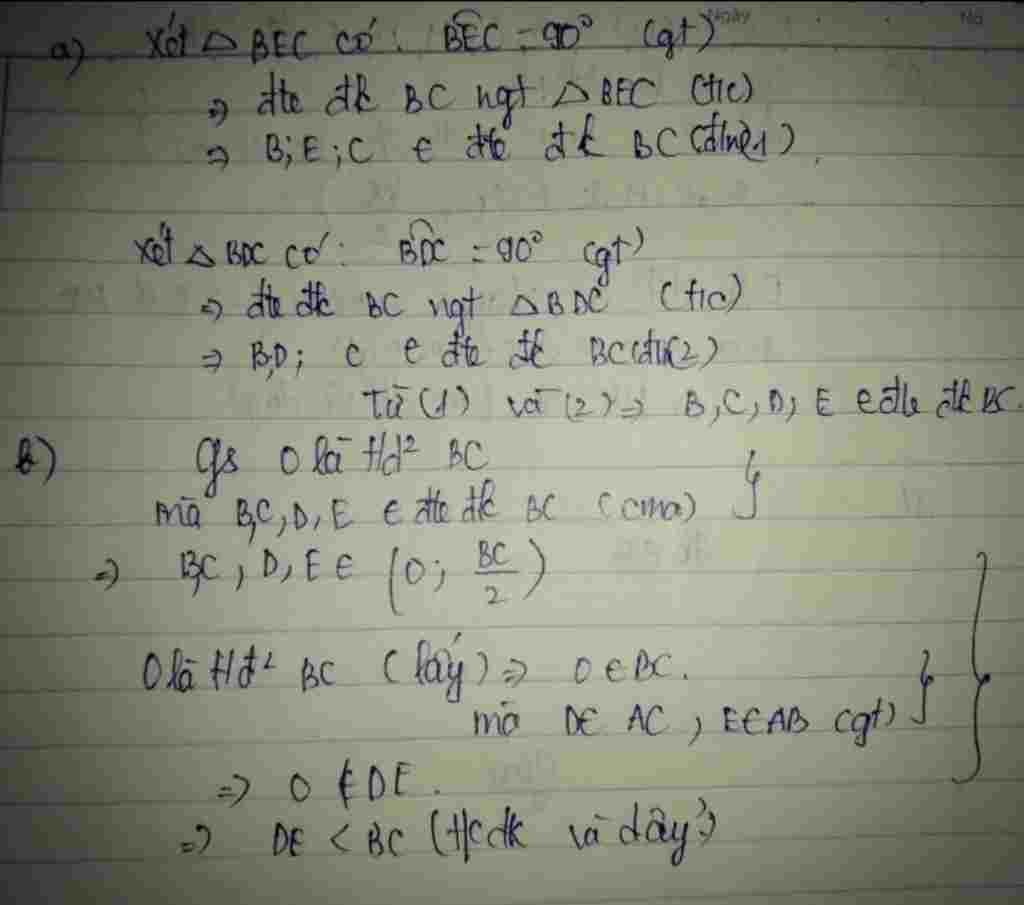 Ngày No
a) Xét △ BEC có: BEC = 90° (gt)
⇒ đtr đk BC ngt △ BEC (t/c)
⇒ B; E; C ∈ đtr đk BC (1)
Xét △ BDC có: BDC = 90° (gt)
⇒ đtr đk BC ngt △ BDC (t/c)
⇒ B,D; C ∈ đtr đk BC (2)
Từ (1) và (2) ⇒ B, C, D, E ∈ đtr đk BC.
b) Gs O là t/đ² BC
mà B,C, D, E ∈ đtr đk BC (cma)
⇒ B,C, D, E ∈ (O; BC/2)
O là t/đ² BC (lấy) ⇒ O ∈ BC.
mà D∈ AC, E∈AB (gt)
⇒ O ∉ DE.
⇒ DE < BC (t/c đk và dây)